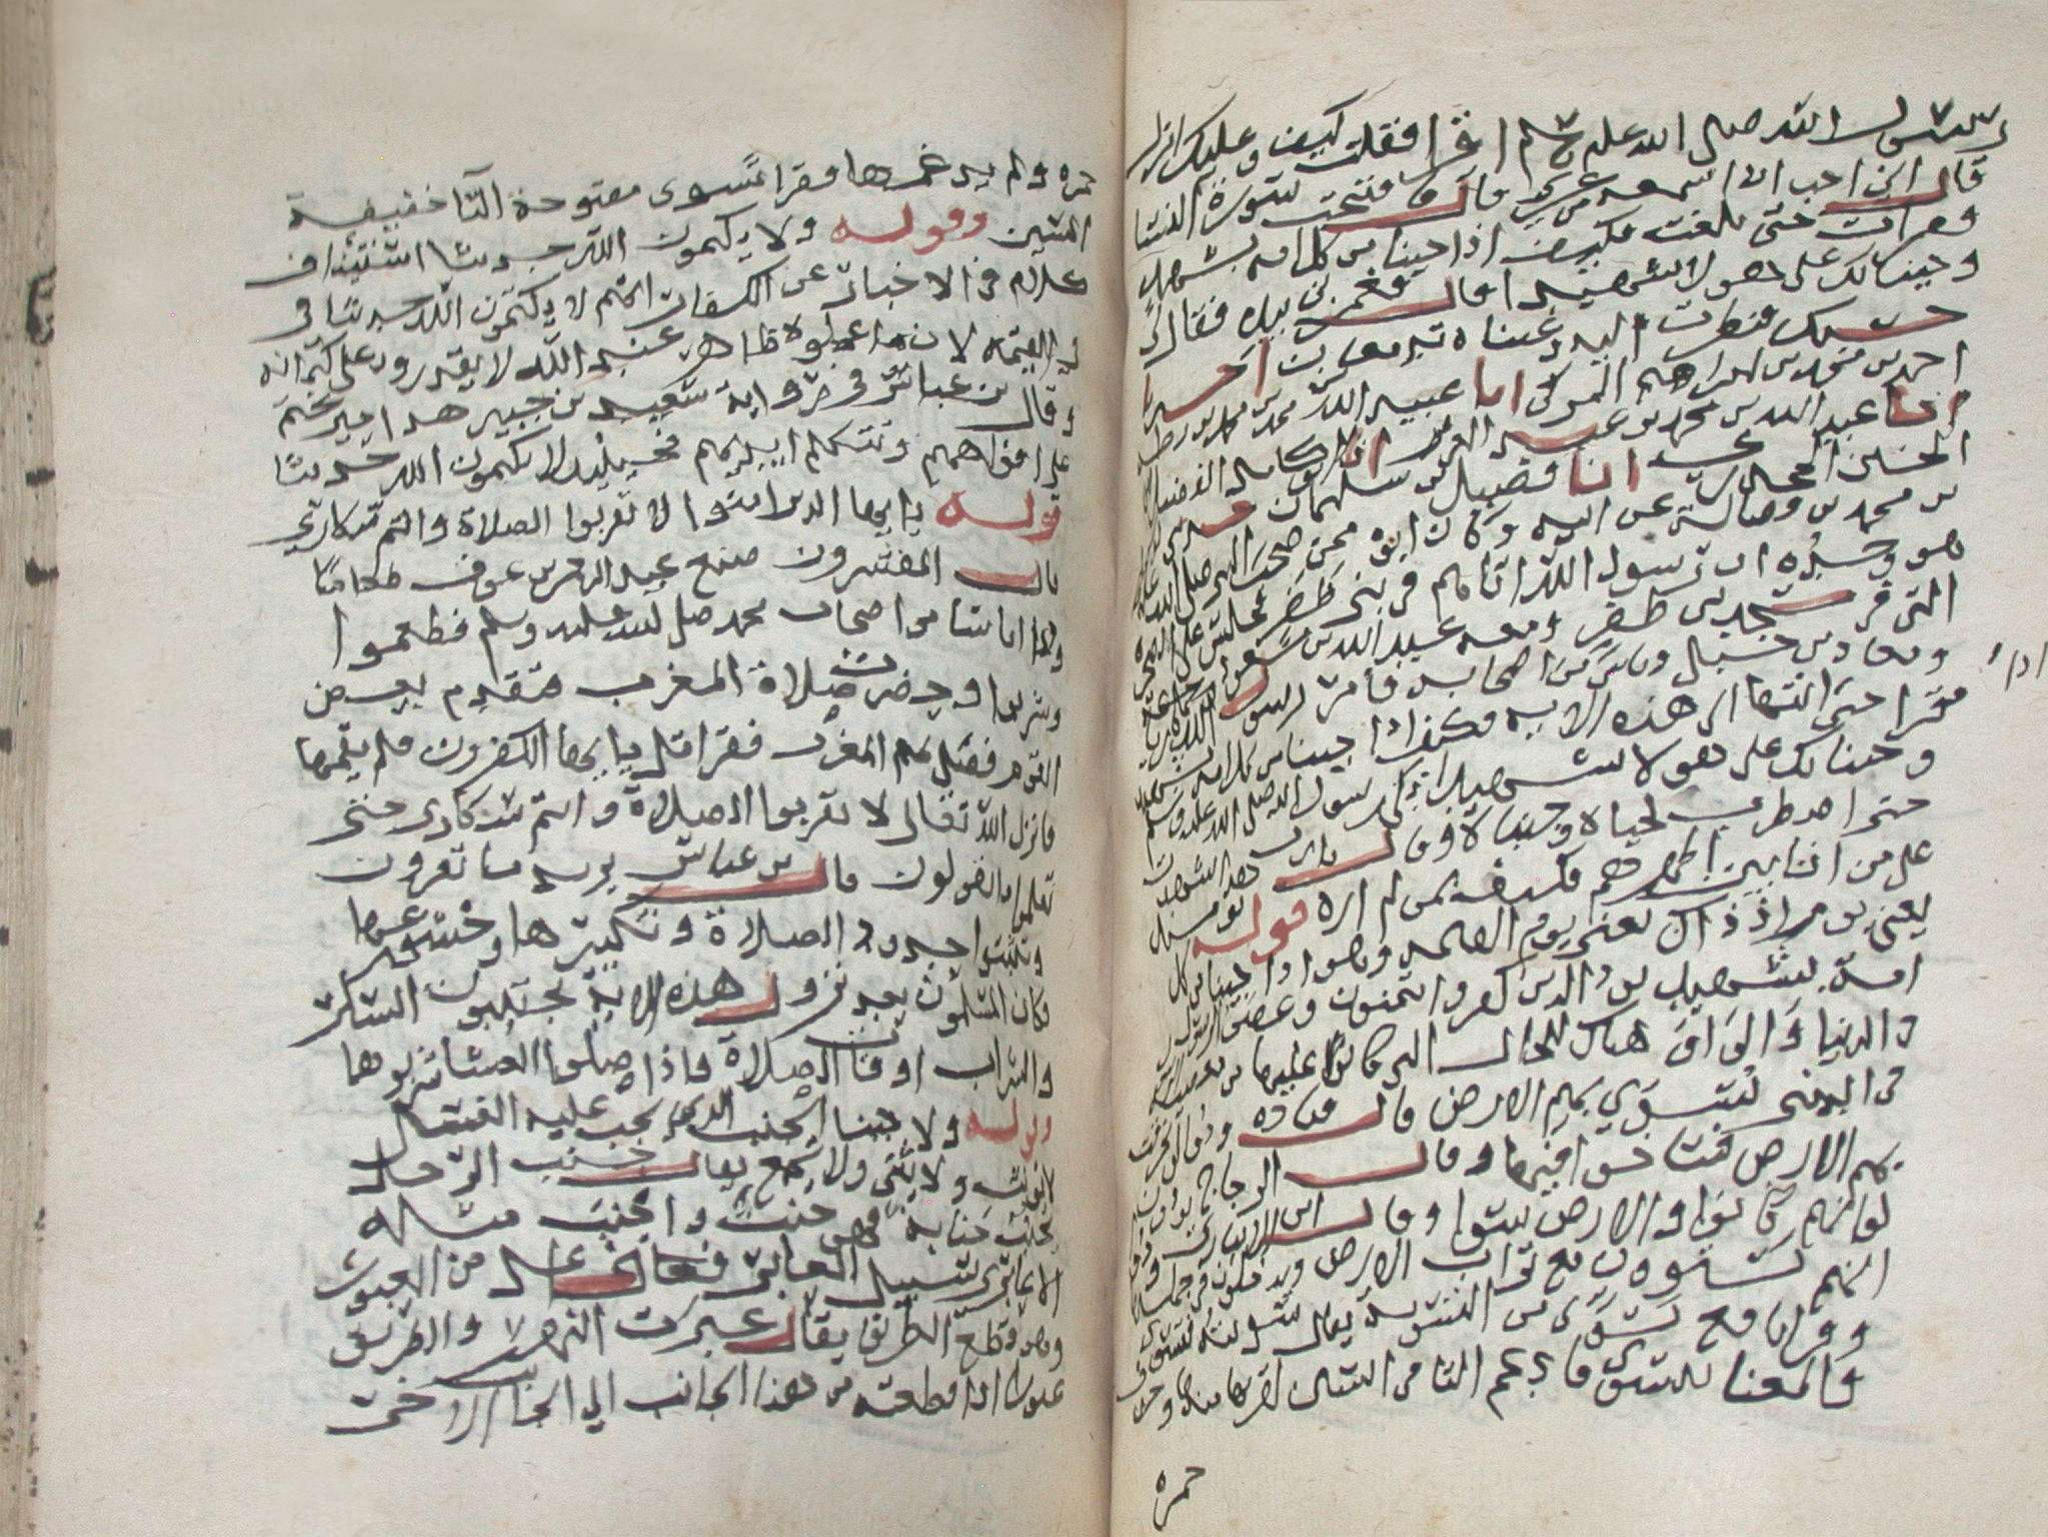 رسول الله صلى الله عليه وسلم اقرا فقلت كيف وعليك انزل
قال اني احب ان اسمعه من غيري قال فافتتحت سورة النسا
وقرات حتى بلغت فكيف اذا جينا من كل امه بشهيد
وجينا بك على هولا شهيدا قال فغمزني بيده فقال لي
حسبك فنظرت اليه وعيناه تدمعان اخبرنا
احمد بن محمد بن ابراهيم المزكي انا عبيد الله بن محمد بن محمد
انا عبد الله بن محمد بن عبد العزيز انا ابو كامل الفضيل بن
الحسين الجحدري انا فضيل بن سليمان
بن محمد بن فضالة عن ابيه وكان ابوه ممن صحب النبي صلى الله عليه
هو وجده ان رسول الله اتاهم في بني ظفر فجلس على الصخرة
التي في مسجد بني ظفر ومعه عبد الله بن مسعود
ومعاذ بن جبل وناس من اصحابه فامر رسول الله قاريا
فقرا حتى انتها الى هذه الايه فكيف اذا جينا من كل امه بشهيد
وجينا بك على هولا شهيدا بكى رسول الله صلى الله عليه وسلم
حتى اضطرب لحياه وجنباه وقال يا رب هذا شهدت
على من انا بين اظهرهم فكيف بمن لم اره قوله يومئذ
يعني يوم اذ ذاك يعني يوم القيمه وهو اذا جينا من كل
امة بشهيد يود الذين كفروا يتمنون وعصوا الرسول
في الدنيا والواو هناك للحال التي كانوا عليها من معصية
في الدنيا لو تسوى بهم الارض قال قتاده ودوا لو تخرقت
بهم الارض فساخوا فيها وقال الزجاج يودون
لو انهم كانوا والارض سوا وقال ابن الانباري
انهم يستوون مع تراب الارض ويدخلون في جملته
وقرا نافع تسوى من التسوية يقال سويته فتسوى
والمعنا تتسوى فادغم التا في السين لقربها منها وحذفها
حمزه
حمزه ولم يدغمها فقرا تسوى مفتوحة التا خفيفة
السين وقوله ولا يكتمون الله حديثا استئناف
كلام في الاخبار عن الكفار انهم لا يكتمون الله حديثا في
في القيمه لان ما عملوه ظاهر عند الله لا يقدرون على كتمانه
وقال بن عباس في رواية سعيد بن جبير هذا حين يختم
على افواههم وتتكلم ايديهم فحينئذ لا يكتمون الله حديثا
قوله يا ايها الذين امنوا لا تقربوا الصلاة وانتم سكارى
قال المفسرون صنع عبد الرحمن بن عوف طعاما
ودعا اناسا من اصحاب محمد صلى الله عليه وسلم فطعموا
وشربوا وحضرت صلاة المغرب فتقدم بعض
القوم فصلى بهم المغرب فقرا قل يا ايها الكفرون فلم يقمها
فانزل الله تعالى لا تقربوا الصلاة وانتم سكارى حتى
تعلموا ما تقولون قال بن عباس يريد ما تقرون
وتثبتوا حدود الصلاة وتكبيرها وخشوعها
وكان المسلمون بعد نزول هذه الاية يجتنبون السكر
والشراب اوقات الصلاة فاذا صلوا العشا شربوها
وقوله ولا جنبا الجنب الذي يجب عليه الغسل
لا يونث ولا يثنى ولا يجمع يقال جنب الرجل
يجنب جنابة فهو جنب واجنب مثله
الا عابري سبيل العابر فعال من العبور
وهو قطع الطريق يقال عبرت النهر والطريق
عبورا اذا قطعته من هذا الجانب الى الجانب الاخر